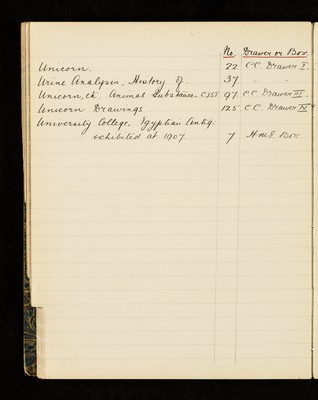 No. Drawer or Box.
Unicorn. 22 C.C. Drawer I.
Urine Analysis, History of. 37 " "
Unicorn, Animal Substance. 97 C.C. Drawer III.
Unicorn Drawings. 125 C.C. Drawer IV
University College. Egyptian Antiq.
exhibited at 1907 7 Box.